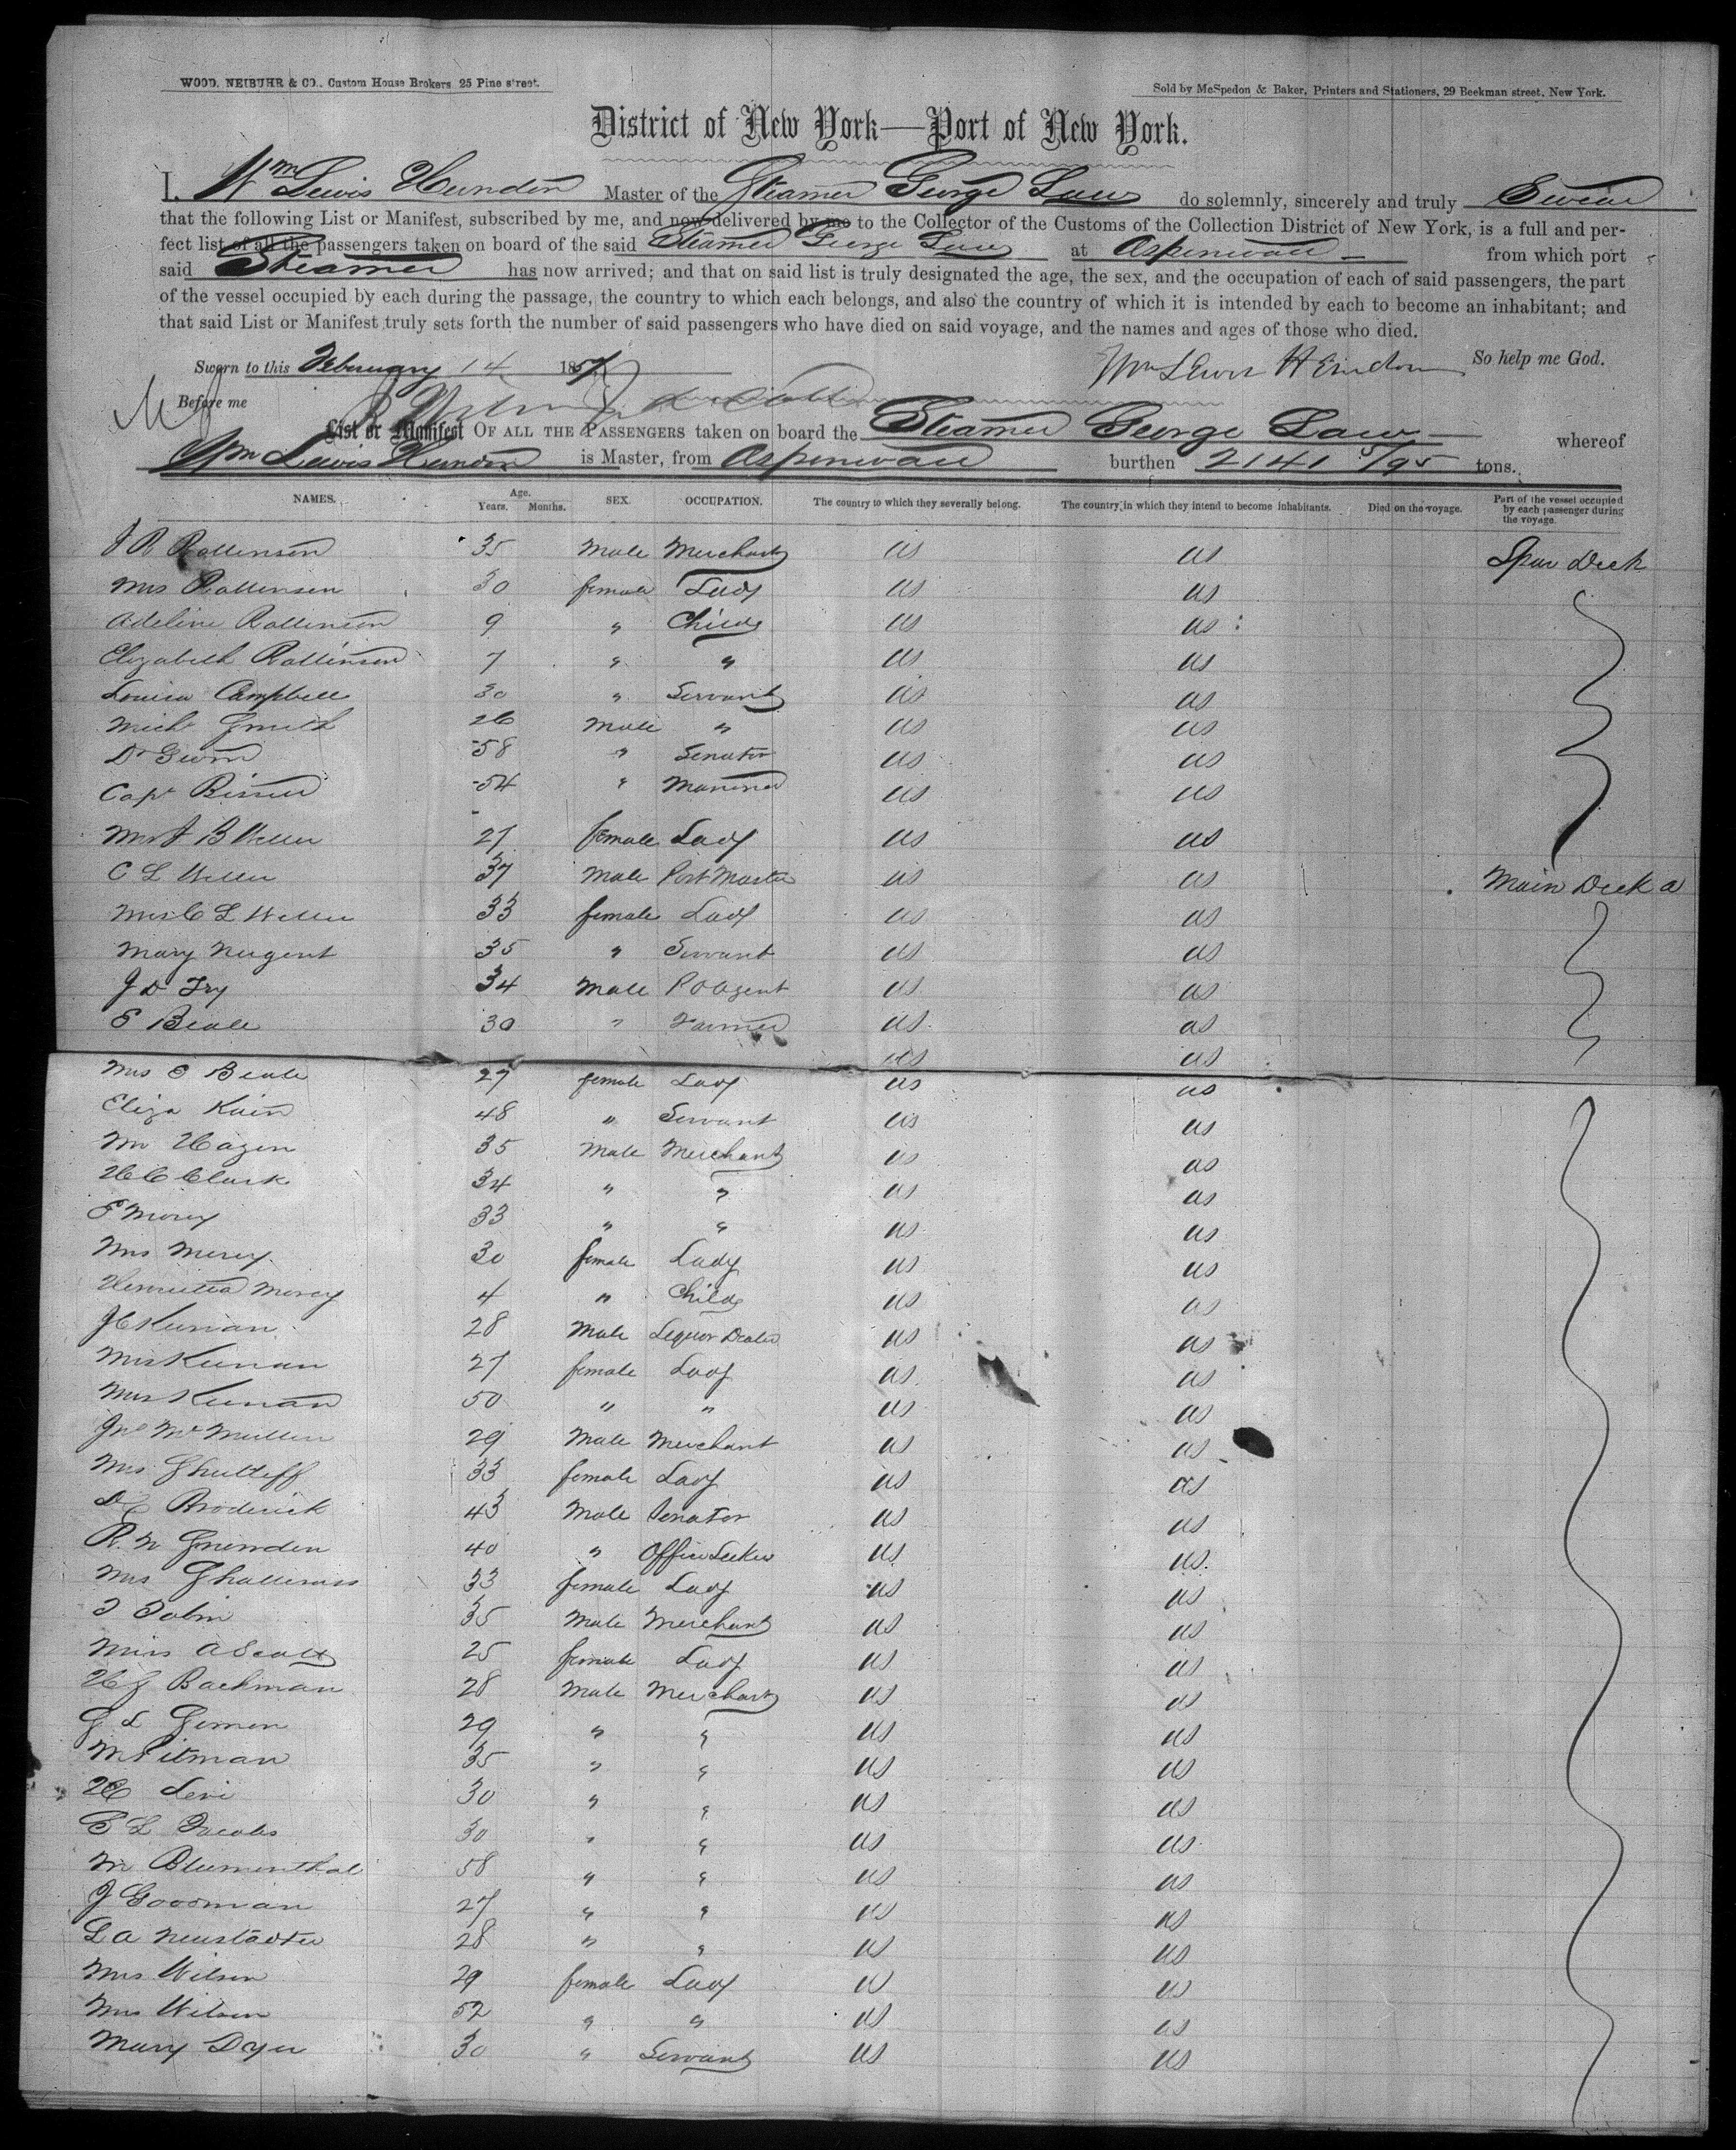 WOOD, NEIBUHR & CO., Custom House Brokers 25 Pine street.
Sold by McSpedon & Baker, Printers and Stationers, 29 Beekman street, New York.
District of New York—Port of New York.
I, Wm Lewis Herndon Master of the Steamer George Law do solemnly, sincerely and truly Swear
that the following List or Manifest, subscribed by me, and now delivered by me to the Collector of the Customs of the Collection District of New York, is a full and per-
fect list of all the passengers taken on board of the said Steamer George Law at Aspinwall from which port
said Steamer has now arrived; and that on said list is truly designated the age, the sex, and the occupation of each of said passengers, the part
of the vessel occupied by each during the passage, the country to which each belongs, and also the country of which it is intended by each to become an inhabitant; and
that said List or Manifest truly sets forth the number of said passengers who have died on said voyage, and the names and ages of those who died.
Sworn to this February 14 1857 Wm Lewis Herndon So help me God.
Before me
List or Manifest OF ALL THE PASSENGERS taken on board the Steamer George Law whereof
Wm Lewis Herndon is Master, from Aspinwall burthen 2141 5/95 tons.
NAMES. Age. Years. Months. SEX. OCCUPATION. The country to which they severally belong. The country in which they intend to become inhabitants. Died on the voyage. Part of the vessel occupied by each passenger during the voyage.
J R Rollinson 35 Male Merchant US US Spar Deck
Mrs Rollinson 30 female Lady US US
Adeline Rollinson 9 " Child US US
Elizabeth Rollinson 7 " " US US
Louisa Campbell 30 " Servant US US
Michl Smith 26 Male " US US
Dr Gwin 58 " Senator US US
Capt Bissell 54 " Mariner US US
Mrs J B Weller 27 female Lady US US
C L Weller 37 Male Post Master US US Main Deck a
Mrs C L Weller 33 female Lady US US
Mary Nugent 35 " Servant US US
J D Fry 34 Male P O Agent US US
E Beale 30 " Farmer US US
US US
Mrs E Beale 27 female Lady US US
Eliza Kain 48 " Servant US US
Mr Hazen 35 Male Merchant US US
H C Clark 34 " " US US
E Morey 33 " " US US
Mrs Morey 30 female Lady US US
Henrietta Morey 4 " Child US US
J C Keenan 28 Male Liquor Dealer US US
Mrs Keenan 27 female Lady US US
Mrs Keenan 50 " " US US
Jno McMullen 29 Male Merchant US US
Mrs Shutleff 33 female Lady US US
D C Broderick 43 Male Senator US US
R. N 40 " Office Seeker US US
Mrs 33 female Lady US US
T Tobin 35 Male Merchant US US
Miss A Scott 25 female Lady US US
H J Bachman 28 Male Merchant US US
G L 29 " " US US
M Pitman 35 " " US US
H Levi 30 " " US US
E L Jacobs 30 " " US US
M Blumenthal 58 " " US US
J Goodman 27 " " US US
L A Neustadter 28 " " US US
Mrs Wilson 29 female Lady US US
Mrs Wilson 52 " " US US
Mary Dyer 30 " Servant US US